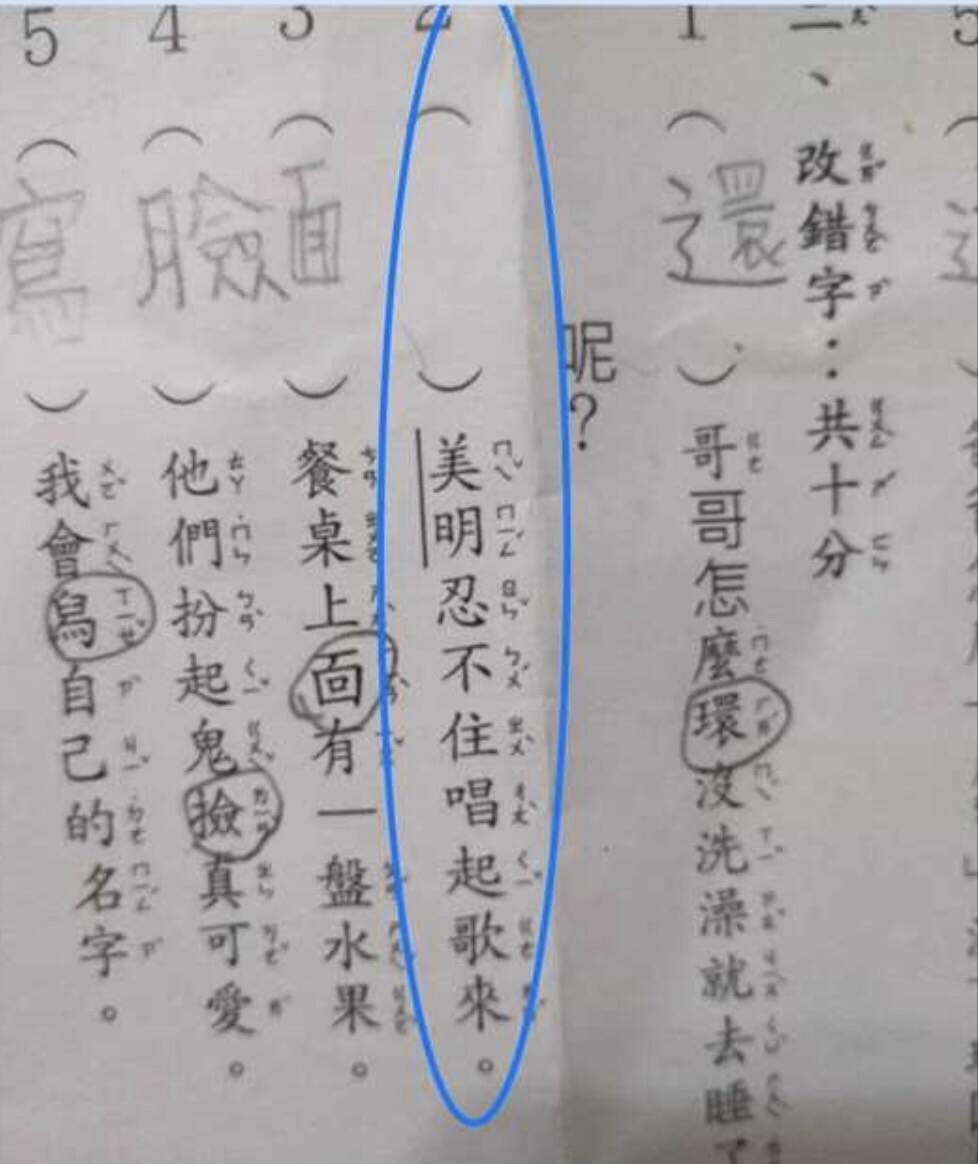 二、改錯字：共十分
1（還）哥哥怎麼環沒洗澡就去睡了
呢？
2（ ）美明忍不住唱起歌來。
3（面）餐桌上靣有一盤水果。
4（臉）他們扮起鬼撿真可愛。
5（寫）我會舄自己的名字。